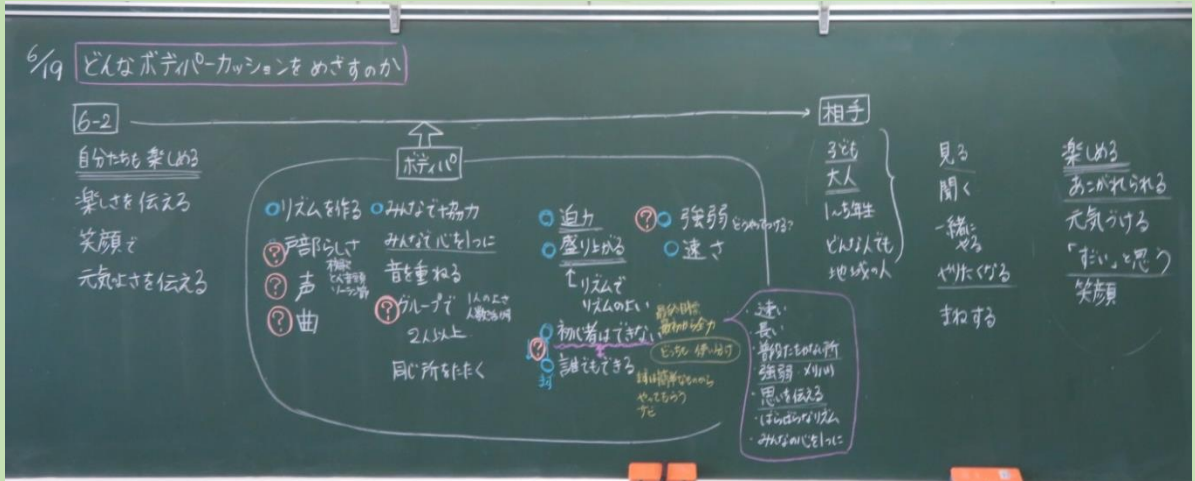 6/19 どんなボディパーカッションをめざすのか
6-2
自分たちも楽しめる
楽しさを伝える
笑顔で
元気よさを伝える
ボディパ
リズムを作る
?戸部らしさ
?声
?曲
みんなで協力
みんなで心を1つに
音を重ねる
?グループで
2人以上
同じ所をたたく
迫力
盛り上がる
↑リズムで
リズムのよい
?初心者はできない
誰でもできる
?強弱 どうやってつける?
速さ
最初から全力
どっちも 使い分け
簡単なものから
やってもらう
・速い
・長い
・普段たたかない所
・強弱・メリハリ
・思いを伝える
・ばらばらなリズム
・みんなの心を1つに
相手
子ども
大人
1~5年生
どんな人でも
地域の人
見る
聞く
一緒に
やる
やりたくなる
まねする
楽しめる
あこがれられる
元気づける
「すごい」と思う
笑顔